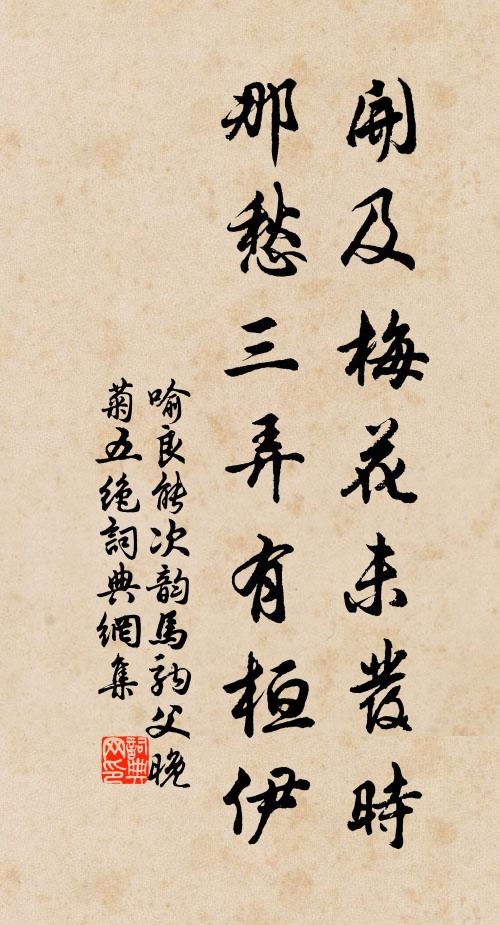 開及梅花未發時
那愁三弄有桓伊
喻良能次韵馬駒父晚
菊五絕詞典網集
詞典
网印